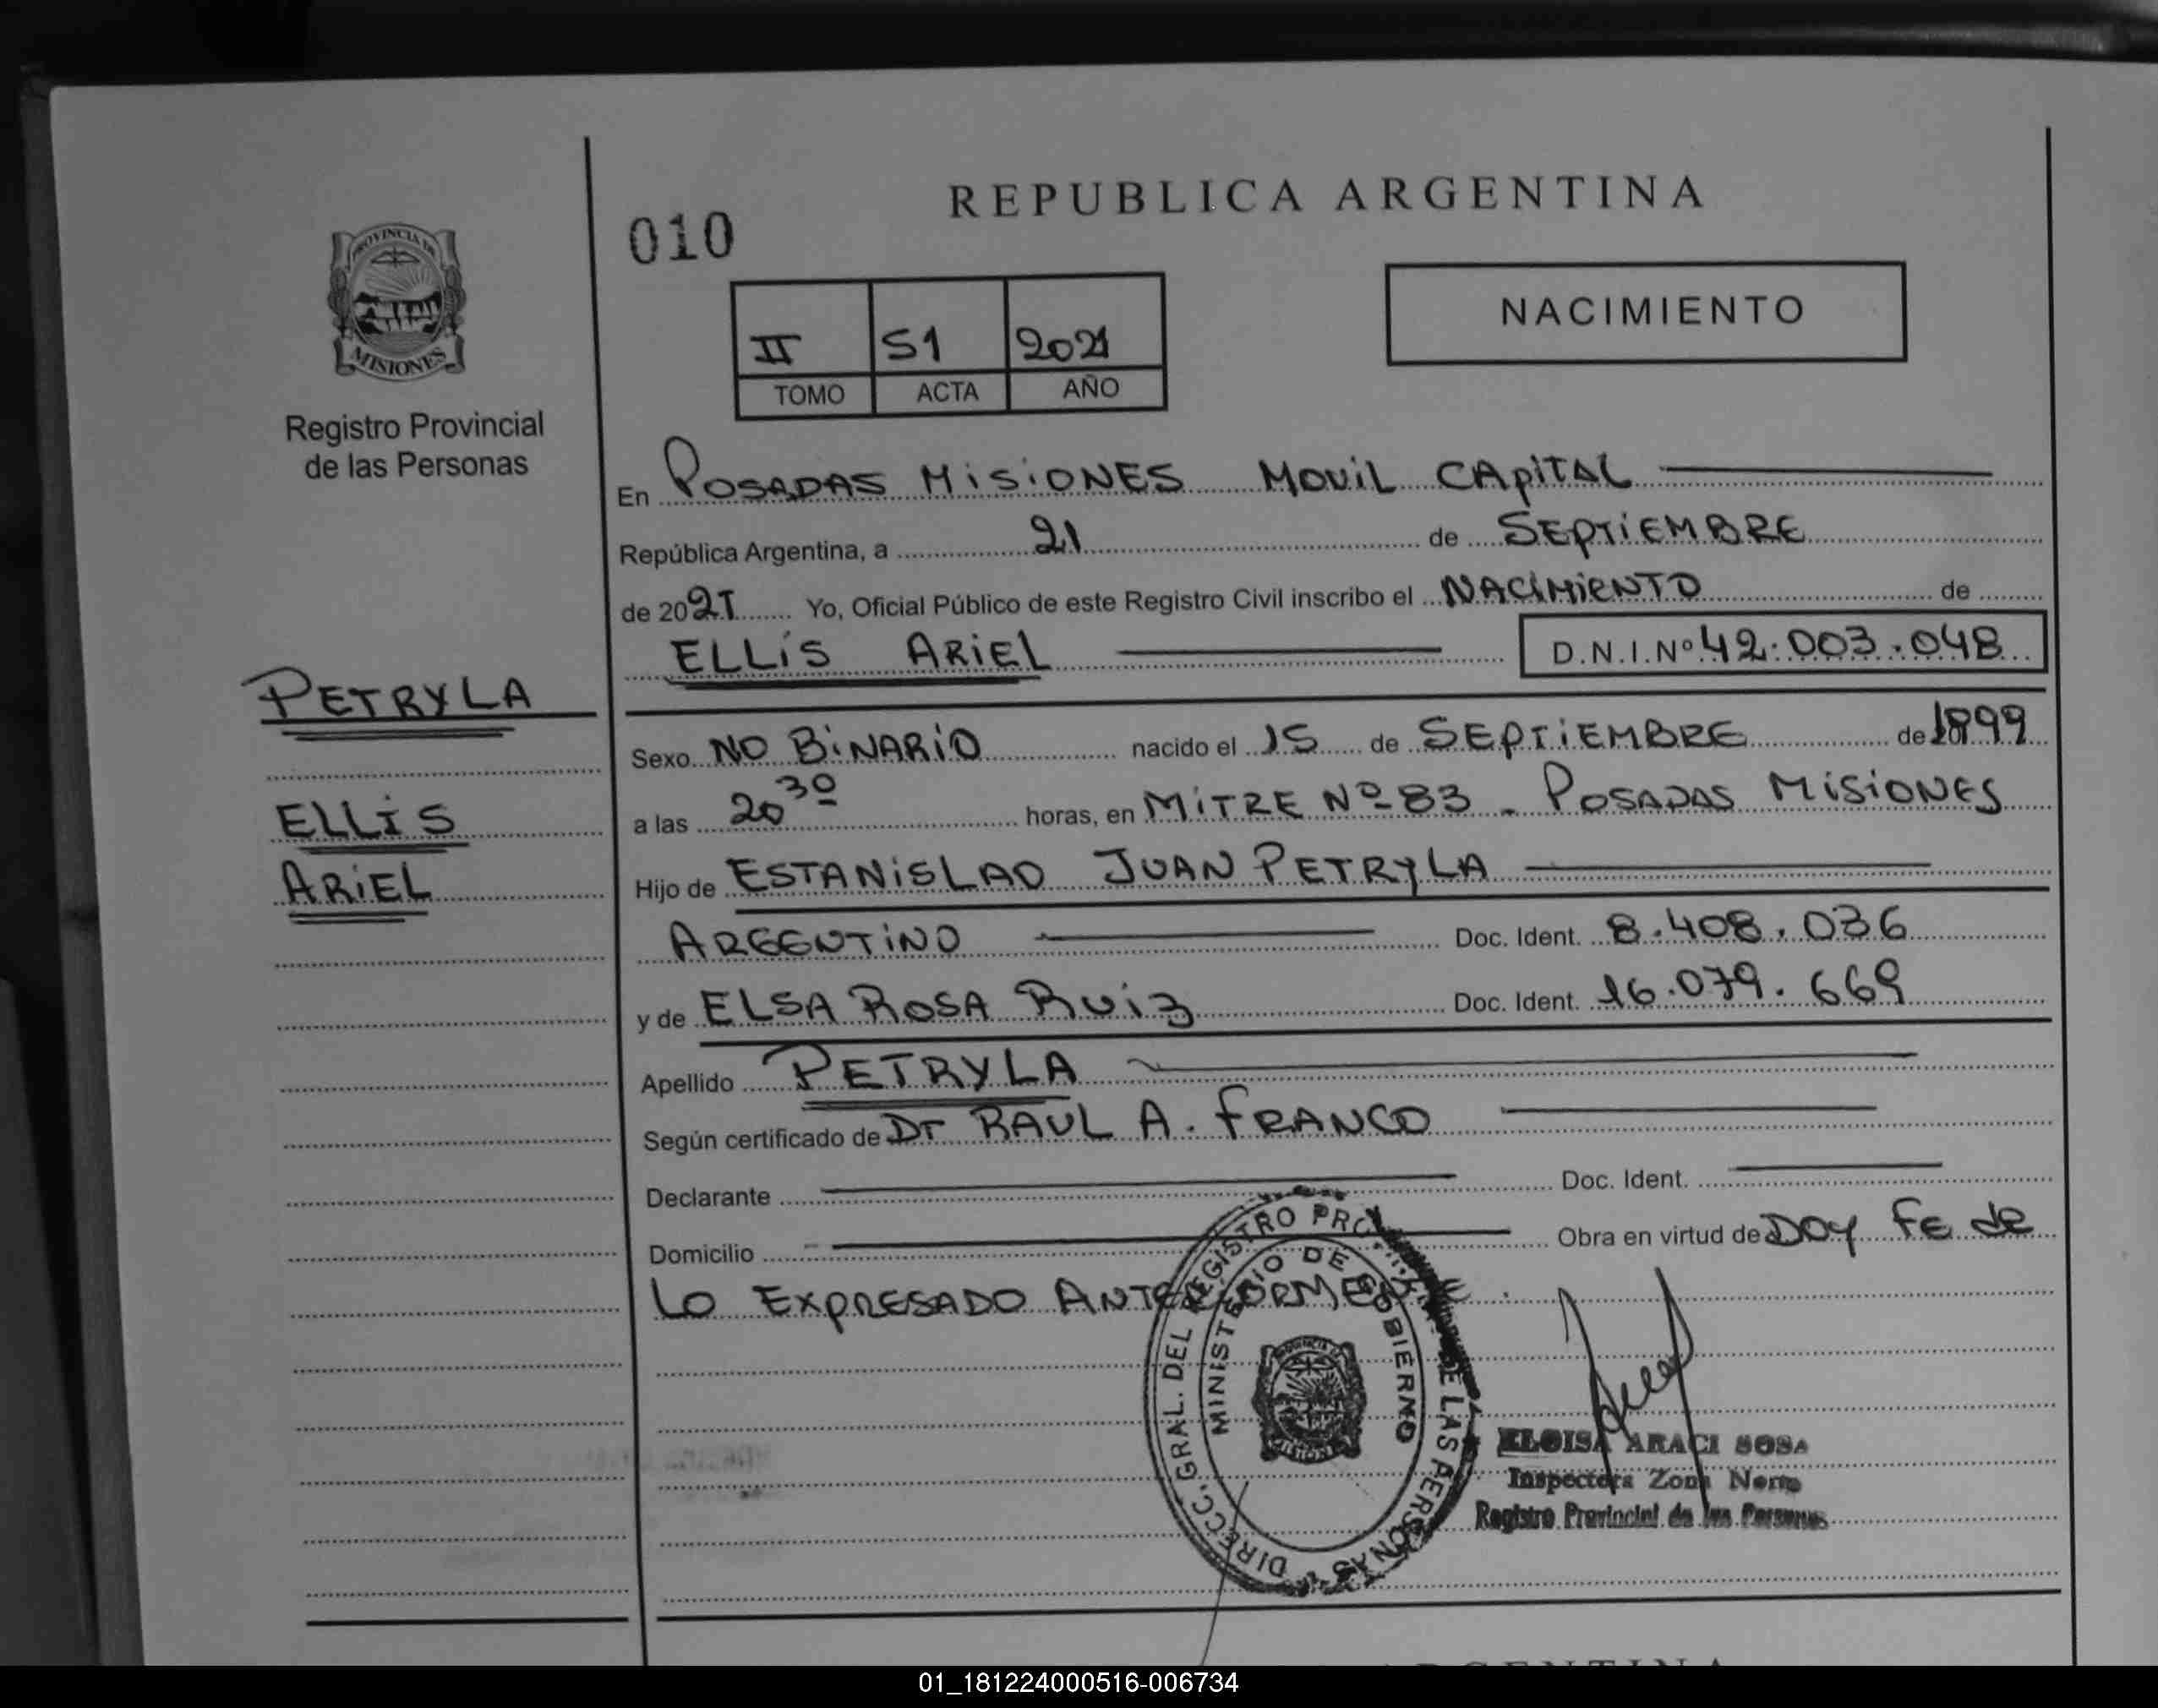 REPUBLICA ARGENTINA
010
PROVINCIA DE
MISIONES
Registro Provincial
de las Personas
II S1 2021
TOMO ACTA AÑO
NACIMIENTO
En POSADAS MISIONES MOVIL CAPITAL
República Argentina, a 21 de SEPTIEMBRE
de 2021 Yo, Oficial Público de este Registro Civil inscribo el NACIMIENTO de
ELLIS ARIEL D.N.I.Nº 42.003.048
PETRYLA
ELLIS
ARIEL
Sexo NO BINARIO nacido el 15 de SEPTIEMBRE de 1999
a las 20 30 horas, en MITRE Nº 83 - POSADAS MISIONES
Hijo de ESTANISLAO JUAN PETRYLA
ARGENTINO Doc. Ident. 8.408.036
y de ELSA ROSA RUIZ Doc. Ident. 16.079.669
Apellido PETRYLA
Según certificado de Dr RAUL A. FRANCO
Declarante Doc. Ident.
Domicilio Obra en virtud de DOY FE de
LO EXPRESADO
DIRECC. GRAL. DEL REGISTRO DE LAS PERSONAS
MINISTERIO DE GOBIERNO
ELOISA ARACI SOSA
Inspectora Zona Norte
Registro Provincial de las Personas
01_181224000516-006734